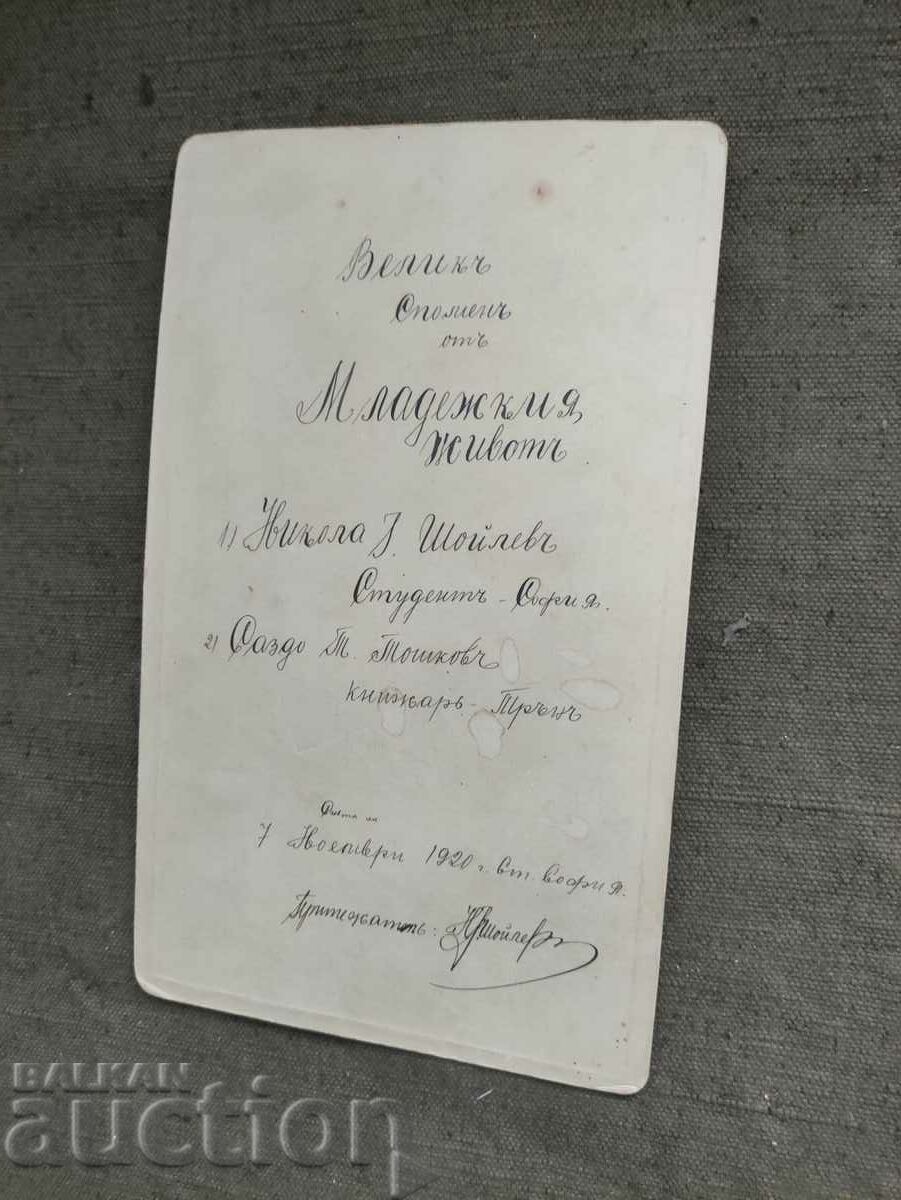 Великъ
Споменъ
отъ
Младежкия
животъ
1) Никола Г. Шойлевъ
Студентъ - София.
2) Саздо Т. Тошковъ
Книжарь - Трънъ
7 Ноември 1920 г. Ст. София.
Притежатель: Шойлевъ
BALKAN
auction